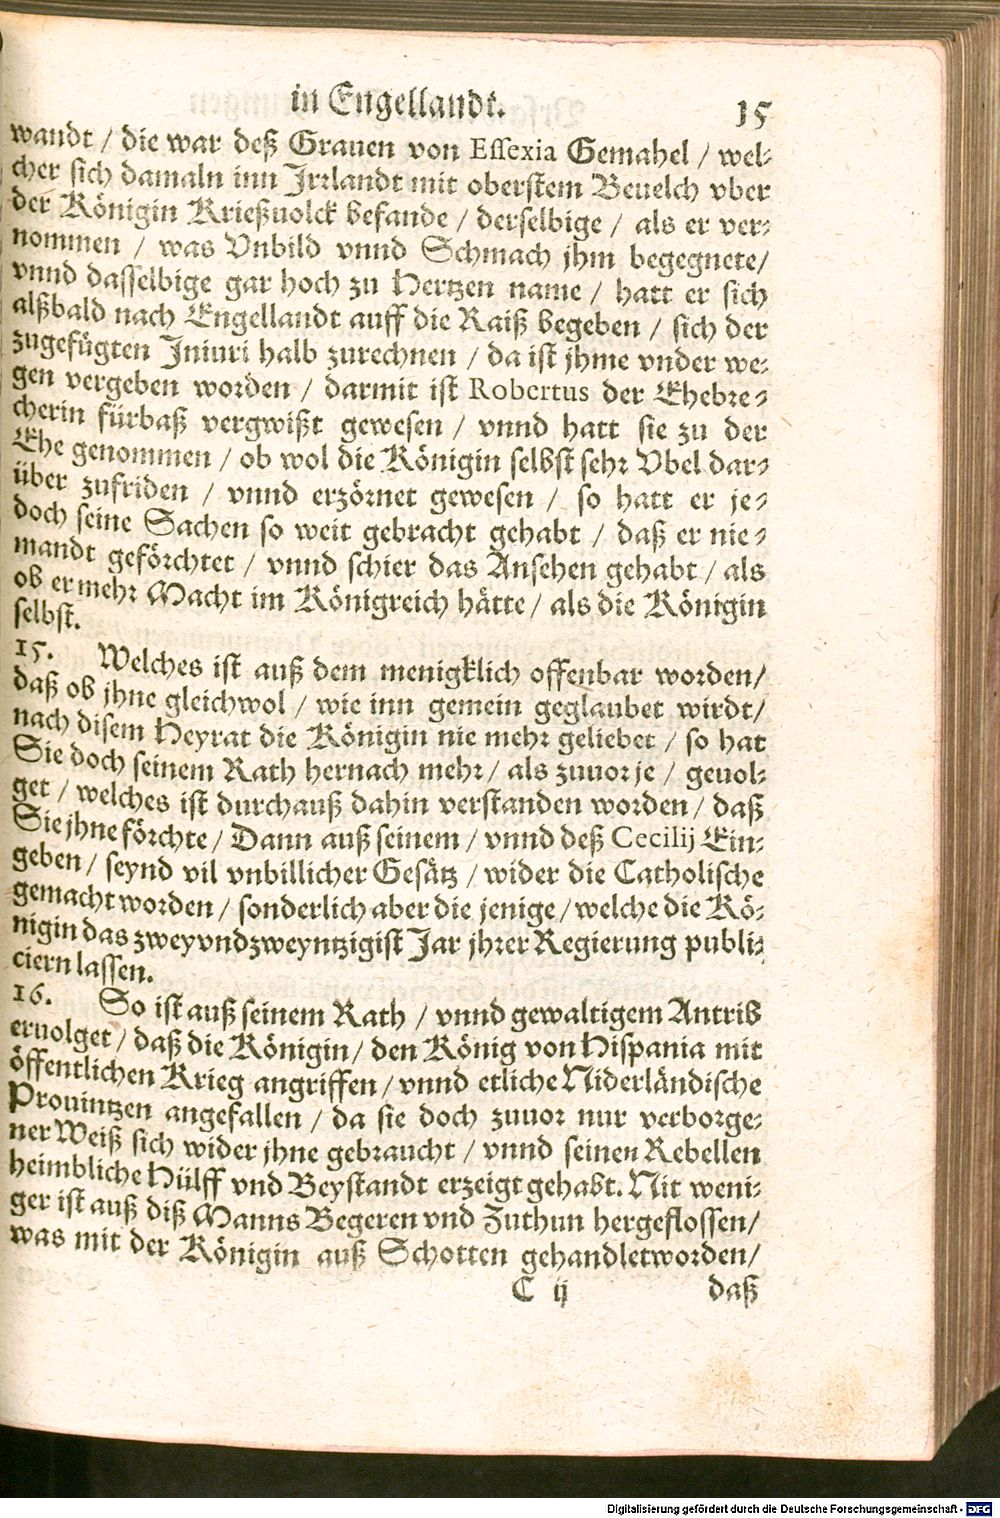 in Engellandt. 15
wandt / die war deß Grauen von Essexia Gemahel / wel-
cher sich damaln inn Irrlandt mit oberstem Beuelch vber
der Königin Krießuolck befande / derselbige / als er ver-
nommen / was Vnbild vnnd Schmach jhm begegnete /
vnnd dasselbige gar hoch zu Hertzen name / hatt er sich
alßbald nach Engellandt auff die Raiß begeben / sich der
zugefügten Iniuri halb zurechnen / da ist jhme vnder we-
gen vergeben worden / darmit ist Robertus der Ehebre-
cherin fürbaß vergwißt gewesen / vnnd hatt sie zu der
Ehe genommen / ob wol die Königin selbst sehr Vbel dar-
über zufriden / vnnd erzörnet gewesen / so hatt er je-
doch seine Sachen so weit gebracht gehabt / daß er nie-
mandt geförchtet / vnnd schier das Ansehen gehabt / als
ob er mehr Macht im Königreich hätte / als die Königin
selbst.
15. Welches ist auß dem menigklich offenbar worden /
daß ob jhne gleichwol / wie inn gemein geglaubet wirdt /
nach disem Heyrat die Königin nie mehr geliebet / so hat
Sie doch seinem Rath hernach mehr / als zuuor je / geuol-
get / welches ist durchauß dahin verstanden worden / daß
Sie jhne förchte / Dann auß seinem / vnnd deß Cecilij Ein-
geben / seynd vil vnbillicher Gesätz / wider die Catholische
gemacht worden / sonderlich aber die jenige / welche die Kö-
nigin das zwey vnd zweyntzigist Jar jhrer Regierung publi-
ciern lassen.
16. So ist auß seinem Rath / vnnd gewaltigem Antrib
eruolget / daß die Königin / den König von Hispania mit
öffentlichen Krieg angriffen / vnnd etliche Niderländische
Prouintzen angefallen / da sie doch zuuor nur verborge-
ner Weiß sich wider jhne gebraucht / vnnd seinen Rebellen
heimbliche Hülff vnd Beystandt erzeigt gehabt. Nit weni-
ger ist auß diß Manns Begeren vnd Zuthun hergeflossen /
was mit der Königin auß Schotten gehandlet worden /
C ij daß
Digitalisierung gefördert durch die Deutsche Forschungsgemeinschaft - DFG